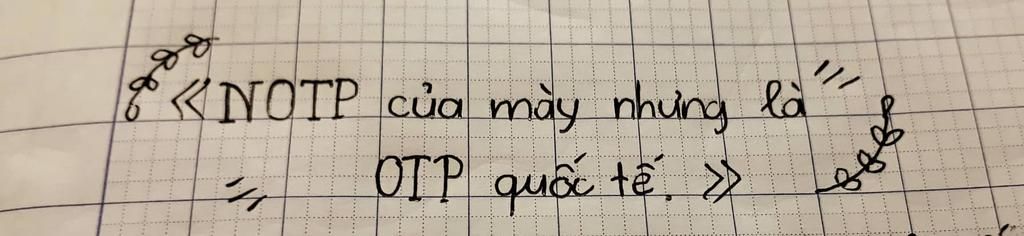 « NOTP của mày nhưng là
OTP quốc tế. »